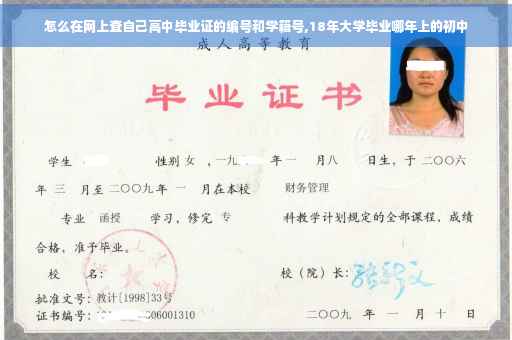 怎么在网上查自己高中毕业证的编号和学籍号,18年大学毕业哪年上的初中
成人高等教育
毕业证书
学生 性别 女 ,一九 年一 月八 日生,于二〇〇六
年 三 月至二〇〇九年 一 月在本校 财务管理
专业 函授 学习,修完 专 科教学计划规定的全部课程,成绩
合格,准予毕业。
校 名: 校(院)长:
批准文号:教计[1998]33号
证书编号: 06001310 二〇〇九 年 一 月 十 日